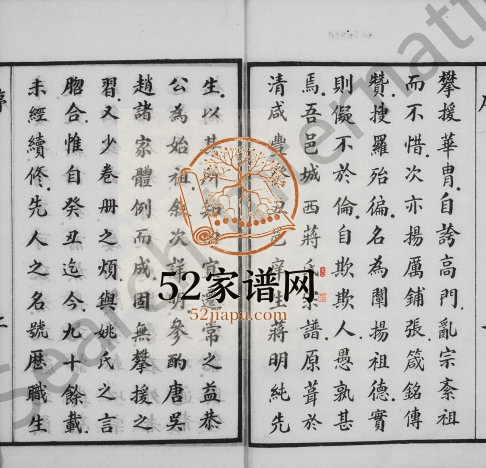 攀援華胄自誇高門亂宗紊祖
而不惜次亦揚厲鋪張箴銘傳
贊搜羅殆徧名為闡揚祖德實
則儗不於倫自欺欺人愚孰甚
焉吾邑城西蔣氏宗譜原葺於
清咸豐癸丑邑庠生蔣明純先
生以其常之益恭
公為始祖叙次參酌唐吳
趙諸家體例而成固無攀援之
習又少卷冊之煩與姚氏之言
脗合惟自癸丑迄今九十餘載
未經續修先人之名號歷職生
52家谱网
52jiapu.com
Search